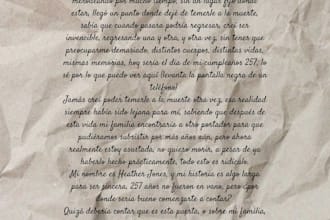 merodeando por mucho tiempo, sin un lugar fijo donde
estar, llegó un punto donde dejé de temerle a la muerte,
sabía que cuando pasara podría regresar, creí ser
invencible, regresando una y otra, y otra vez, sin tener que
preocuparme demasiado, distintos cuerpos, distintas vidas,
mismas memorias, hoy sería el día de mi cumpleaños 257, lo
sé por lo que puedo ver aquí (levanta la pantalla negra de un
teléfono)
Jamás creí poder temerle a la muerte otra vez, esa realidad
siempre había sido lejana para mí, sabiendo que después de
esta vida mi familia encontraría a otro portador para que
pudiéramos subsistir por más años aún, pero ahora
realmente estoy asustada, no quiero morir, a pesar de ya
haberlo hecho prácticamente, todo esto es ridículo.
Mi nombre es Heather Jones, y mi historia es algo larga
para ser sincera, 257 años no fueron en vano, pero ¿por
donde sería bueno comenzarte a contar?
Quizá debería contar que es esta puerta, o sobre mi familia,